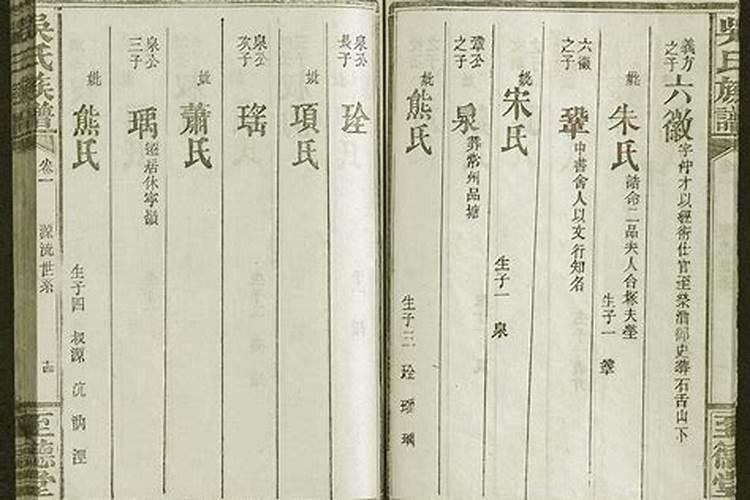 吳氏族譜
至德堂
義方之子 六徽 字仲才以經術仕官至 御史葬石舌山下
妣 朱氏 誥命二品夫人合塚夫塋 生子一 鞏
六徽之子 鞏 中書舍人以文行知名
妣 宋氏 生子一 泉
鞏公之子 泉 葬常州品塘
妣 熊氏 生子三 瑤 瑀
泉公長子
妣 項氏
泉公次子 瑤
妣 蕭氏
泉公三子 瑀 遷居休寧嶺
妣 熊氏 生子四 叔源 沆
吳氏族譜 卷一 源流世系
至德堂